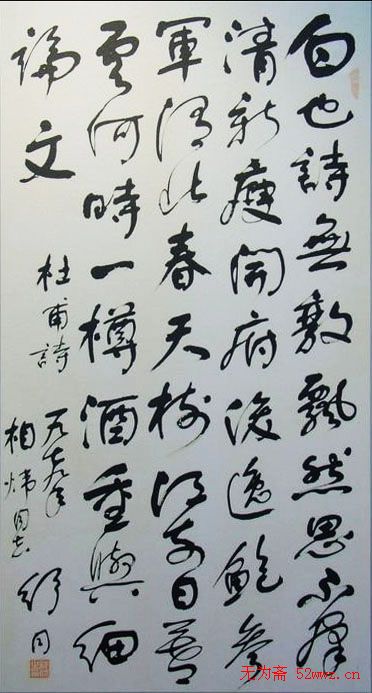 白也詩無敵飄然思不羣
清新庾開府俊逸鮑參
軍渭北春天樹江東日暮
雲何時一樽酒重與細
論文
杜甫詩
相炜同志
舒同
无为斋 52wwz.cn